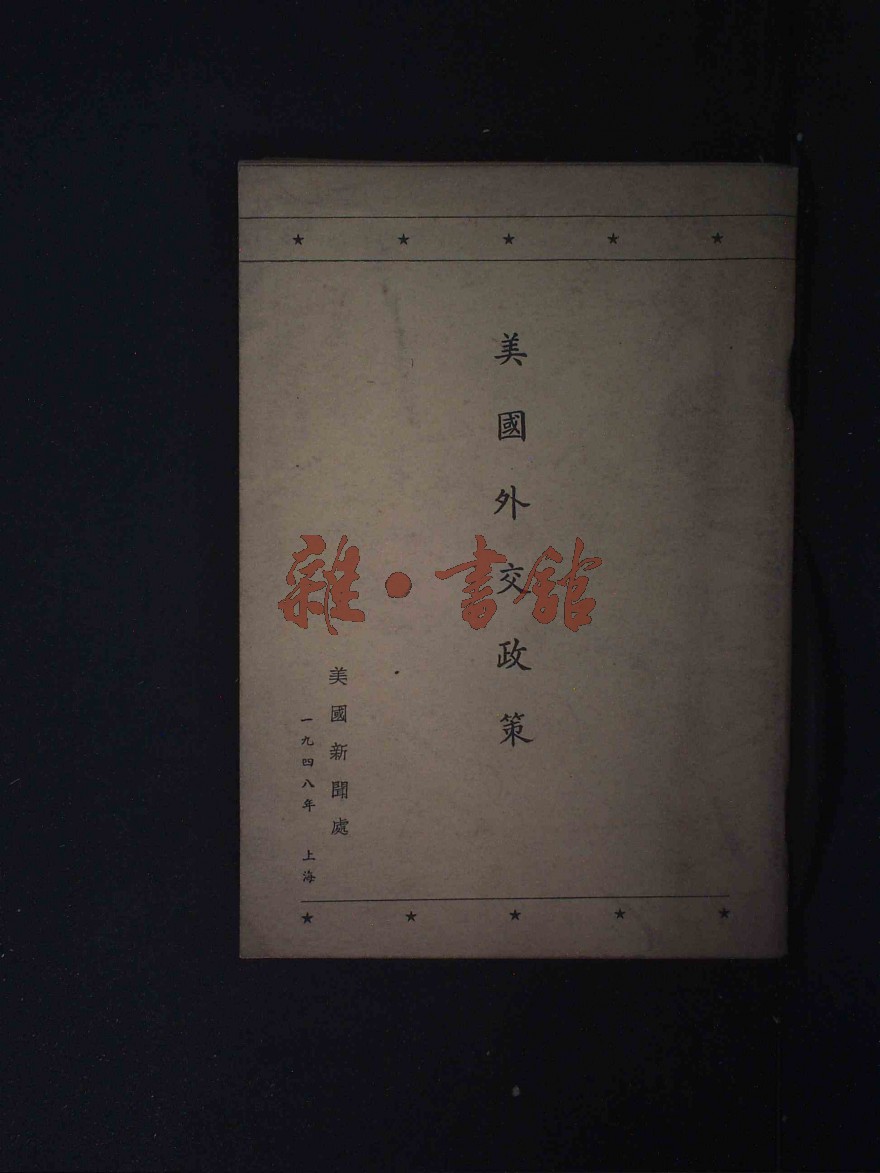 美國外交政策
美國新聞處
一九四八年 上海
雜·書館